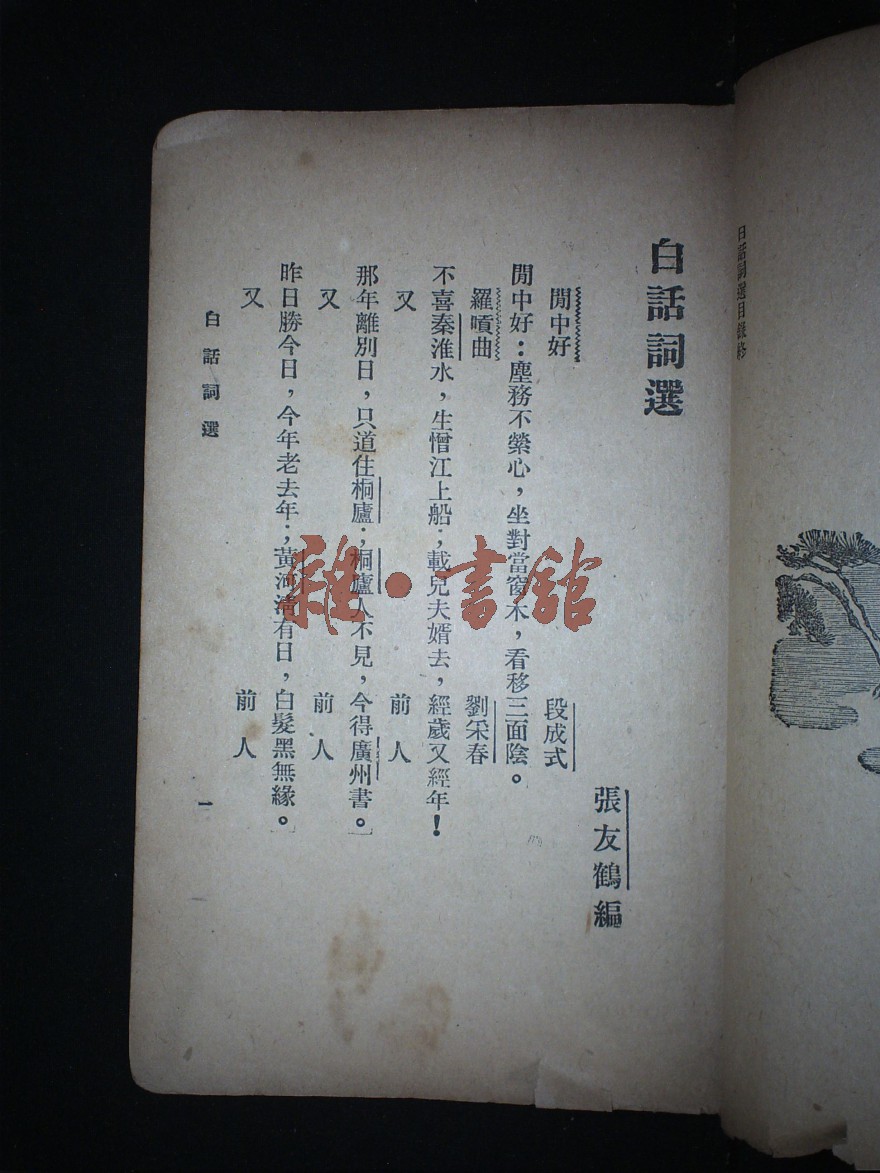 白話詞選目錄終
白話詞選
張友鶴編
閒中好 段成式
閒中好：塵務不縈心，坐對當窗木，看移三面陰。
羅嗊曲 劉采春
不喜秦淮水，生憎江上船；載兒夫婿去，經歲又經年！
又 前人
那年離別日，只道住桐廬；桐廬人不見，今得廣州書。
又 前人
昨日勝今日，今年老去年；黃河清有日，白髮黑無緣。
又 前人
白話詞選 一
雜·書館